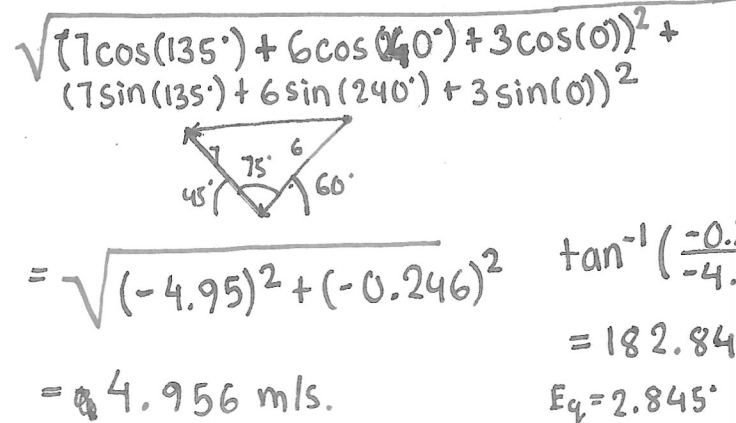 √(7cos(135°) + 6cos(240°) + 3cos(0))² +
(7sin(135°) + 6sin(240°) + 3sin(0))²
7 75° 6
45° 60°
= √(-4.95)² + (-0.246)² tan⁻¹(-0.
-4.
= 182.84
= 4.956 m/s. Eq = 2.845°